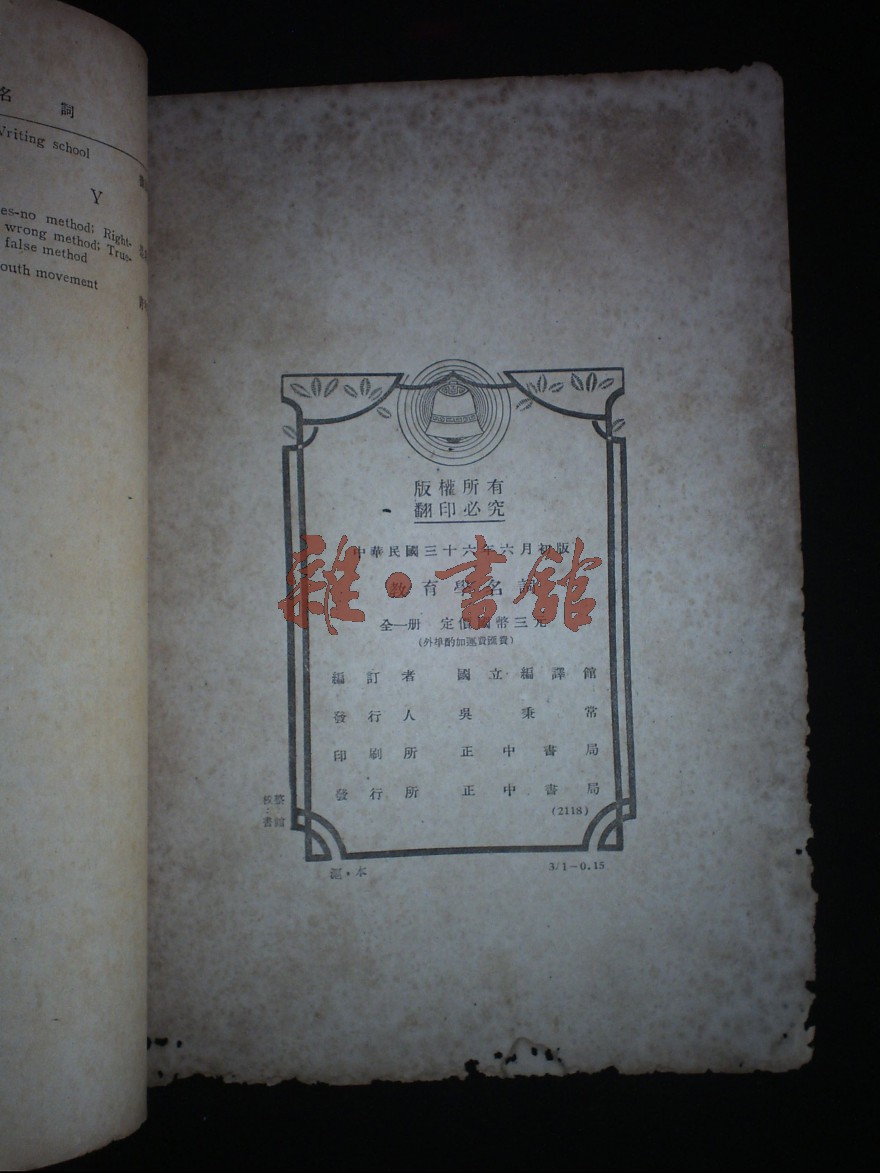 名 詞
Writing school
Y
es-no method; Right-
wrong method; True-
false method
outh movement
版權所有
翻印必究
中華民國三十六年六月初版
教育學名詞
全一册 定價國幣三元
(外埠酌加運費匯費)
編訂者 國立編譯館
發行人 吳秉常
印刷所 正中書局
發行所 正中書局
(2118)
滬·本
3/1-0.15
雜·書館